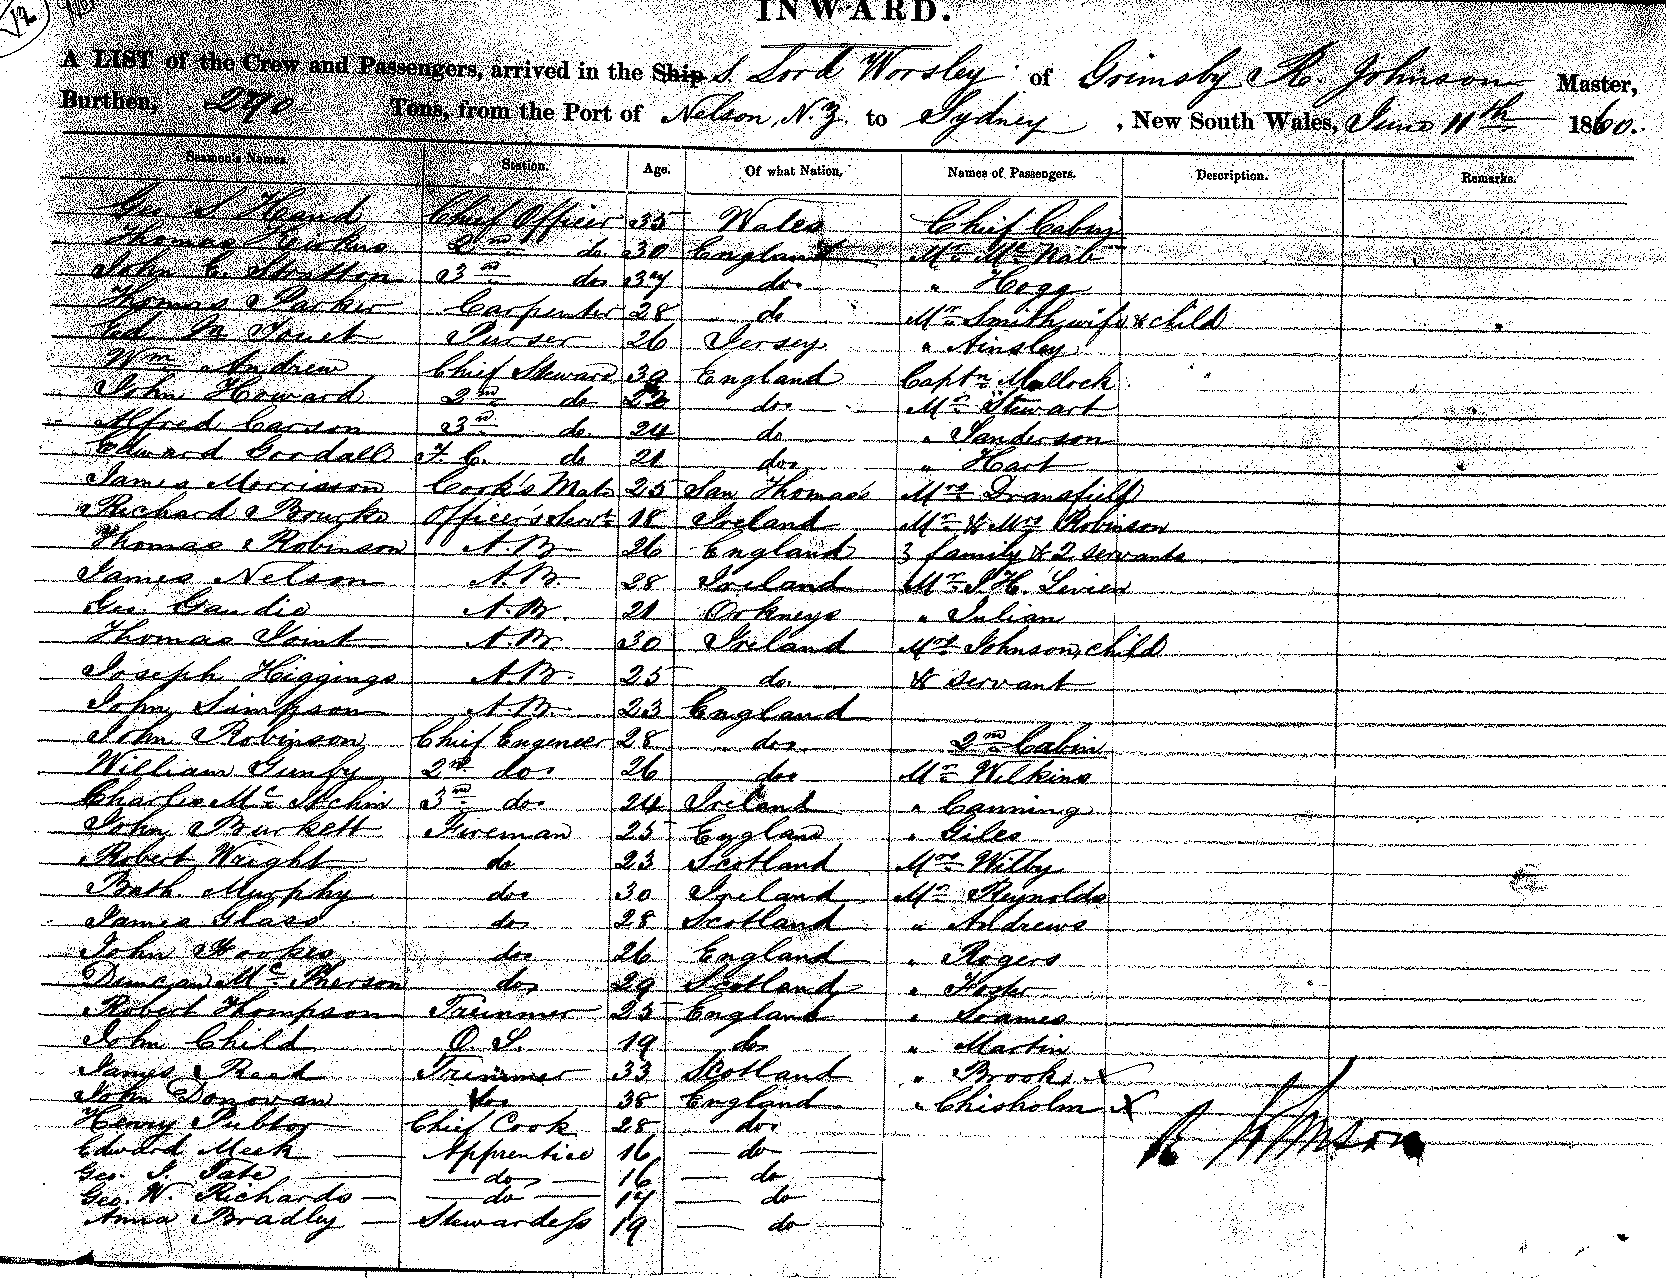 INWARD.
A LIST of the Crew and Passengers, arrived in the Ship S. Lord Worsley of Grimsby R. Johnson Master,
Burthen, 290 Tons, from the Port of Nelson, N.Z. to Sydney, New South Wales, June 11th 1860.
Seamen's Names. Station. Age. Of what Nation. Names of Passengers. Description. Remarks.
Geo S Heand Chief Officer 35 Wales Chief Cabin
Thomas 2nd do 30 England Mr Mc Nab
John C. Stratton 3rd do 37 do " Hogg
Thomas Parker Carpenter 28 do Mr Smith, wife & child
Ed Purser 26 Jersey " Ainsley
Wm Andrew Chief Steward 39 England Captn Mullock
John Howard 2nd do do Mr Stewart
Alfred Carson 3rd do 24 do " Sanderson
Edward Goodall F. C. do 21 do " Hart
James Morrison Cook's Mate 25 San Thomas Mrs Dransfield
Richard Bourke Officer's Servt 18 Ireland Mr & Mrs Robinson
Thomas Robinson A.B. 26 England 3 family & 2 servants
James Nelson A.B. 28 Ireland Mr J. H. Levien
Geo. Gaudie A.B. 21 Orkneys " Julian
Thomas Joint A.B. 30 Ireland Mrs Johnson, child
Joseph Higgings A.B. 25 do & servant
John Simpson A.B. 23 England
John Robinson Chief Engineer 28 do 2nd Cabin
William Gunby 2nd do 26 do Mr Wilkins
Charles Mc 3rd do 24 Ireland " Canning
John Burkett Fireman 25 England " Giles
Robert Wright do 23 Scotland Mrs Wilby
Bath. Murphy do 30 Ireland Mr Reynolds
James Glass do 28 Scotland " Andrews
John Hookes do 26 England " Rogers
Duncan Mc Pherson do 29 Scotland " Foster
Robert Thompson Trimmer 25 England " Soames
John Child O. S. 19 do " Martin
James Reed Trimmer 33 Scotland " Brooks X
John Donovan do 38 England " Chisholm X
Henry Chief Cook 28 do
R Johnson
Edward Meek Apprentice 16 do
Geo. J. Tate do 16 do
Geo. W. Richards do 17 do
Anna Bradley Stewardess 19 do